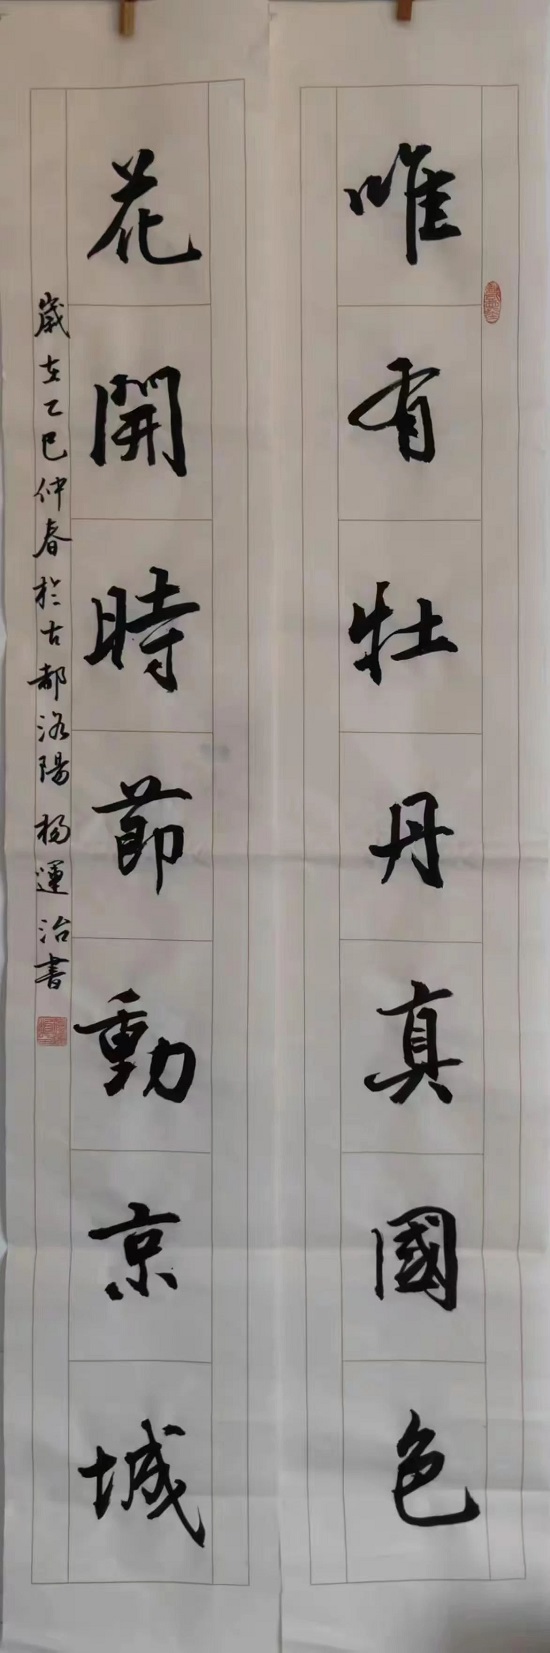 唯有牡丹真國色
花開時節動京城
歲在乙巳仲春於古都洛陽 楊運治書